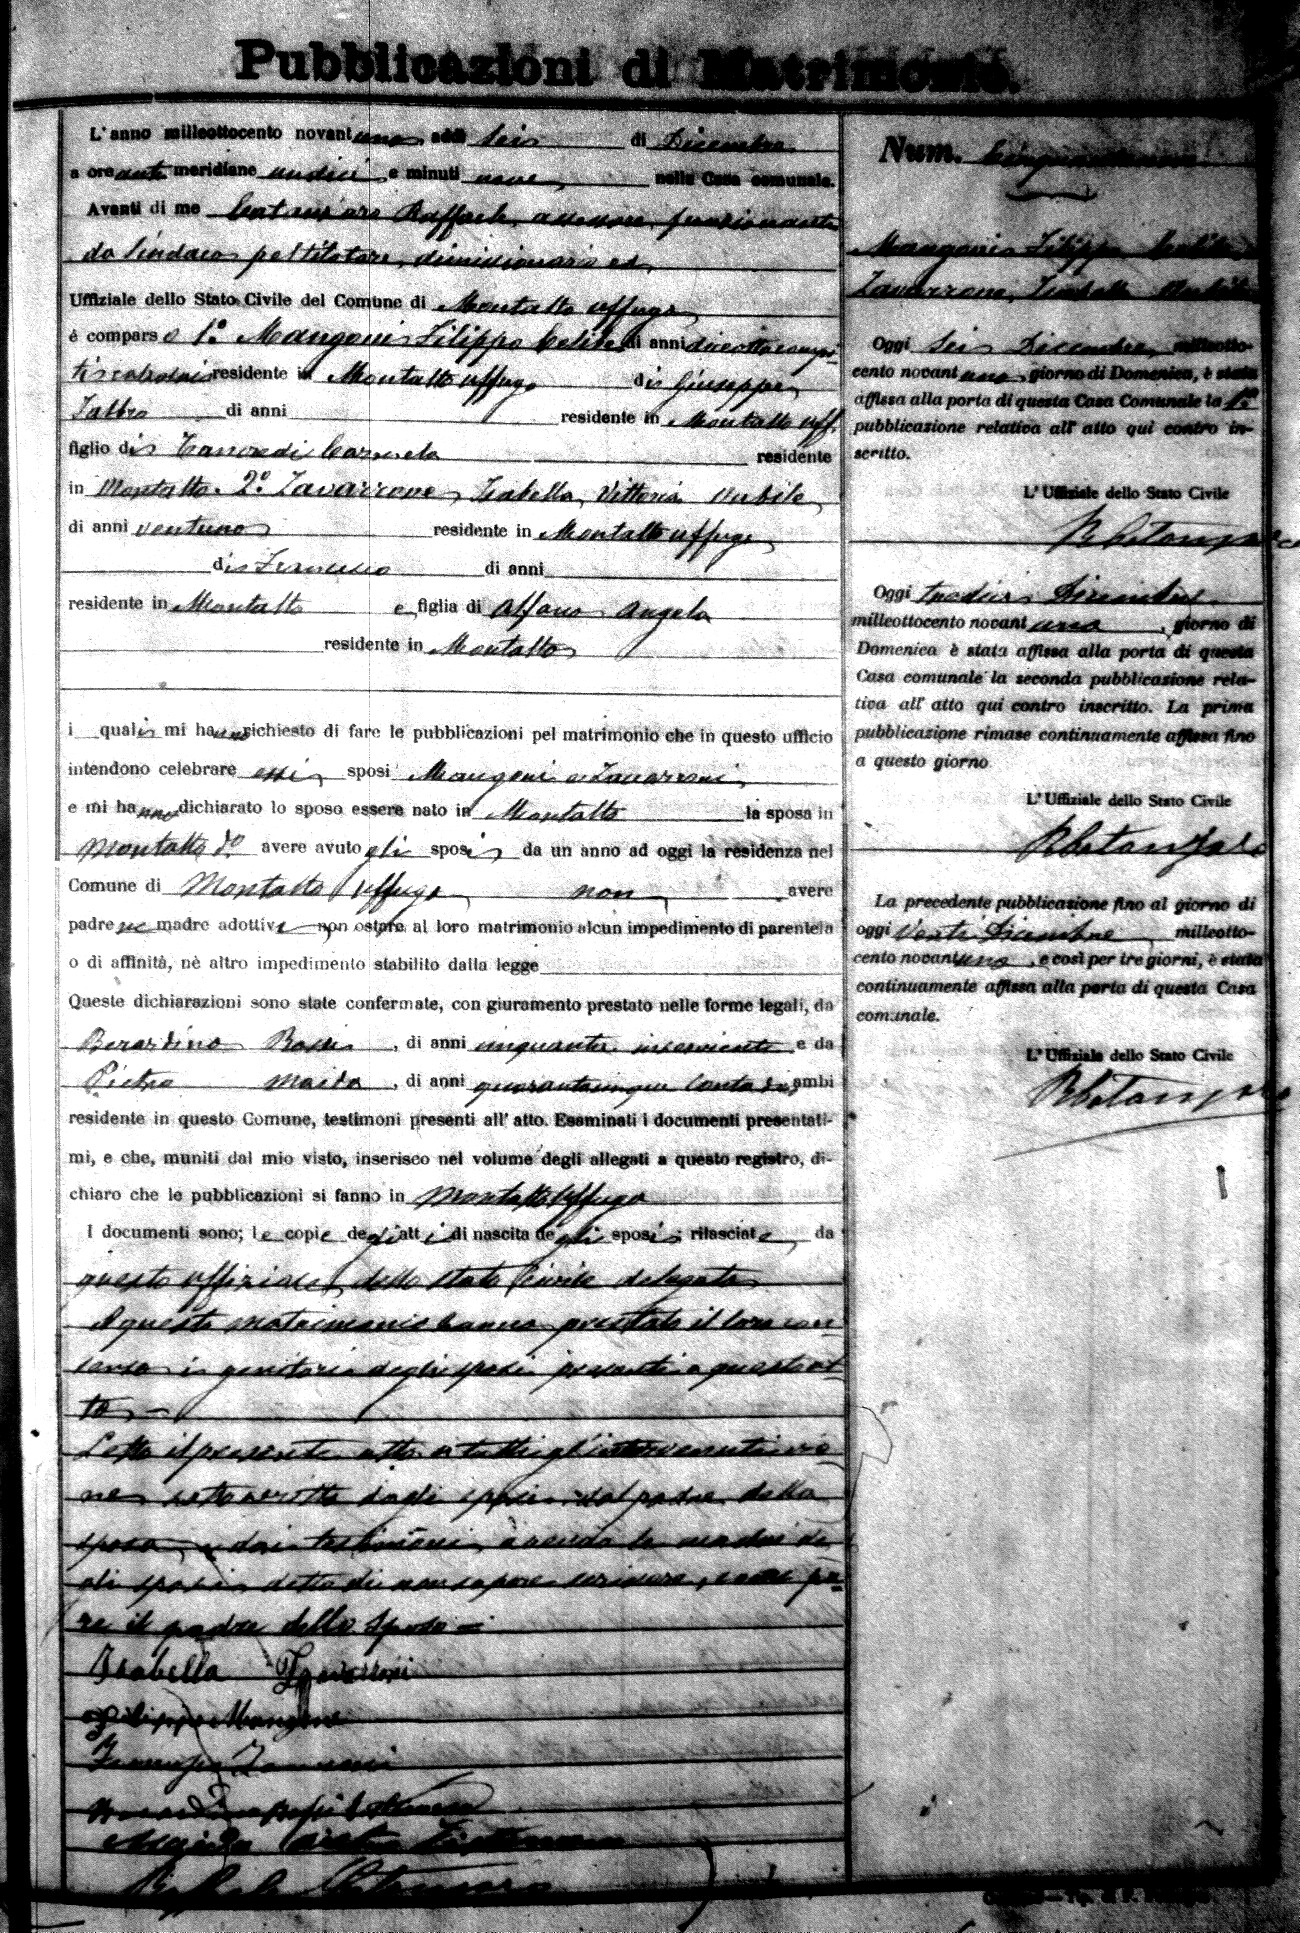 Pubblicazioni di Matrimonio.
L'anno milleottocento novant uno addì sei di Dicembre
a ore anti meridiane undici e minuti nove nella Casa comunale.
Avanti di me Catanzaro Raffaele assessore funzionante
da Sindaco pel titolare dimissionario ed
Uffiziale dello Stato Civile del Comune di Montalto Uffugo
è comparso 1.º Mangoni Filippo Celibe di anni diciotto compi-
ti residente in Montalto Uffugo di Giuseppe
Fabbro di anni residente in Montalto Uff.
figlio di Tancredi Carmela residente
in Montalto. 2.º Zavarrone Isabella Vittoria nubile
di anni ventuno residente in Montalto Uffugo
di Francesco di anni
residente in Montalto e figlia di Alfano Angela
residente in Montalto
i quali mi hanno richiesto di fare le pubblicazioni pel matrimonio che in questo ufficio
intendono celebrare essi sposi Mangoni e Zavarroni
e mi hanno dichiarato lo sposo essere nato in Montalto la sposa in
Montalto dº avere avuto gli sposi da un anno ad oggi la residenza nel
Comune di Montalto Uffugo non avere
padre ne madre adottivi non ostare al loro matrimonio alcun impedimento di parentela
o di affinità, nè altro impedimento stabilito dalla legge
Queste dichiarazioni sono state confermate, con giuramento prestato nelle forme legali, da
Berardino Bossi, di anni cinquanta inserviente e da
Pietro Maida, di anni quarantacinque Contadino ambi
residente in questo Comune, testimoni presenti all'atto. Esaminati i documenti presentati-
mi, e che, muniti dal mio visto, inserisco nel volume degli allegati a questo registro, di-
chiaro che le pubblicazioni si fanno in Montalto Uffugo
I documenti sono; le copie degli atti di nascita degli sposi; rilasciate da
questo uffiziale dello stato Civile delegato
A questo matrimonio hanno prestato il loro con-
senso i genitori degli sposi presenti a questo at-
to —
Letto il presente atto a tutti gl'intervenuti vie-
ne sottoscritto dagli sposi dal padre della
sposa, e dai testimoni avendo le madri de
gli sposi detto di non sapere scrivere, come pu-
re il padre dello sposo —
Isabella Zavarroni
Filippo Mangone
Francesco Zavarroni
Berardino Bossi testimone
Maida Pietro Testimone
Raffaele Catanzaro
Num. Cinquantanove
Mangoni Filippo Celibe
Zavarrone Isabella Nubile
Oggi sei Dicembre milleotto-
cento novant uno giorno di Domenica, è stata
affissa alla porta di questa Casa Comunale la 1ª
pubblicazione relativa all'atto qui contro in-
scritto.
L'Uffiziale dello Stato Civile
RCatanzaro
Oggi tredici Dicembre
milleottocento novant uno, giorno di
Domenica è stata affissa alla porta di questa
Casa comunale la seconda pubblicazione rela-
tiva all'atto qui contro inscritto. La prima
pubblicazione rimase continuamente affissa fino
a questo giorno
L'Uffiziale dello Stato Civile
RCatanzaro
La precedente pubblicazione fino al giorno di
oggi Venti Dicembre milleotto-
cento novant uno, e così per tre giorni, è stata
continuamente affissa alla porta di questa Casa
comunale.
L'Uffiziale dello Stato Civile
RCatanzaro